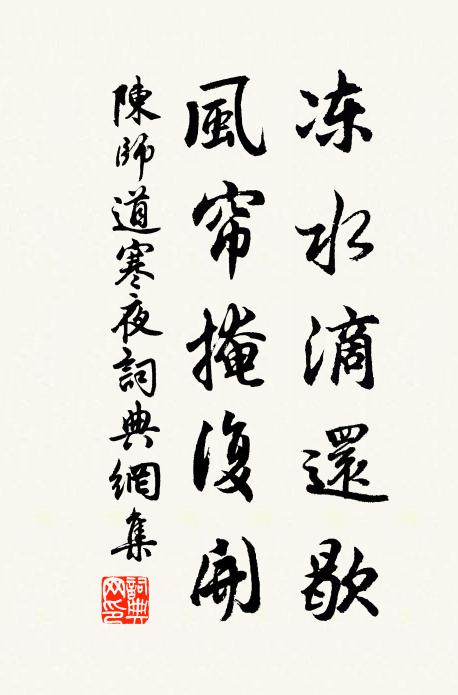 冻水滴還歇
風帘掩復開
陳師道寒夜詞典網集
詞典网印